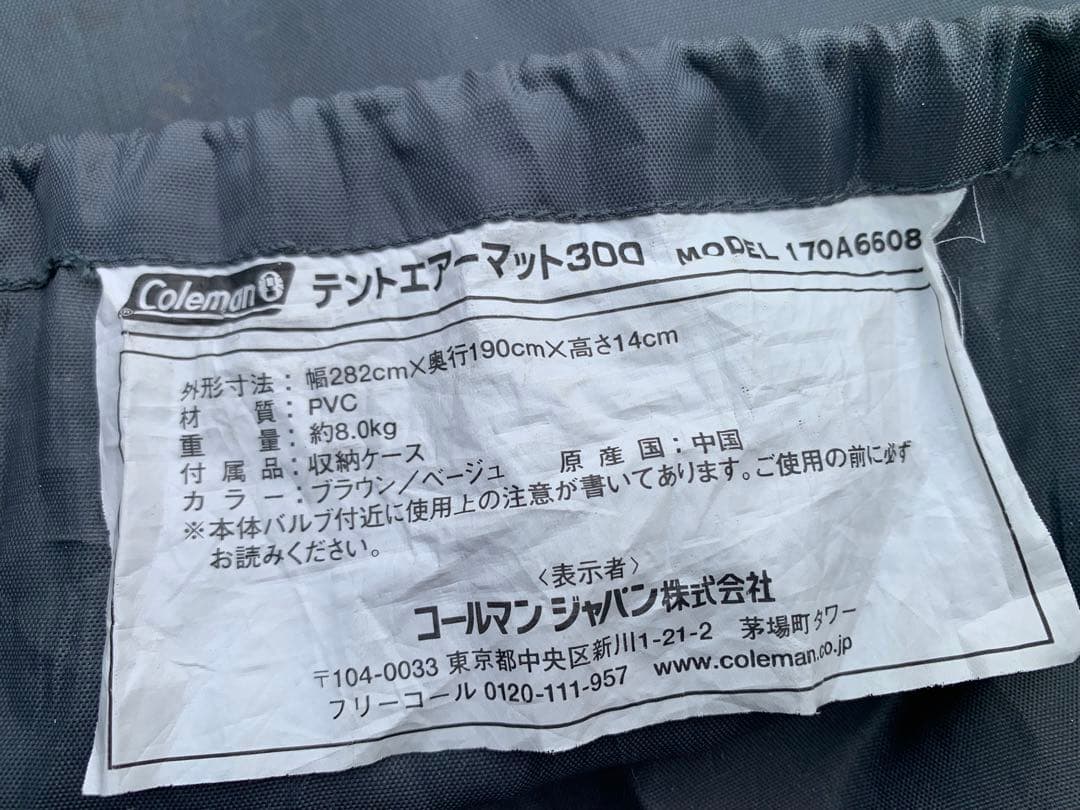 Coleman® テントエアーマット300 MODEL 170A6608
外形寸法：幅282cm×奥行190cm×高さ14cm
材　質：PVC
重　量：約8.0kg
付属品：収納ケース
カラー：ブラウン／ベージュ　原産国：中国
※本体バルブ付近に使用上の注意が書いてあります。ご使用の前に必ず
お読みください。
〈表示者〉
コールマン ジャパン株式会社
〒104-0033 東京都中央区新川1-21-2　茅場町タワー
フリーコール 0120-111-957　www.coleman.co.jp